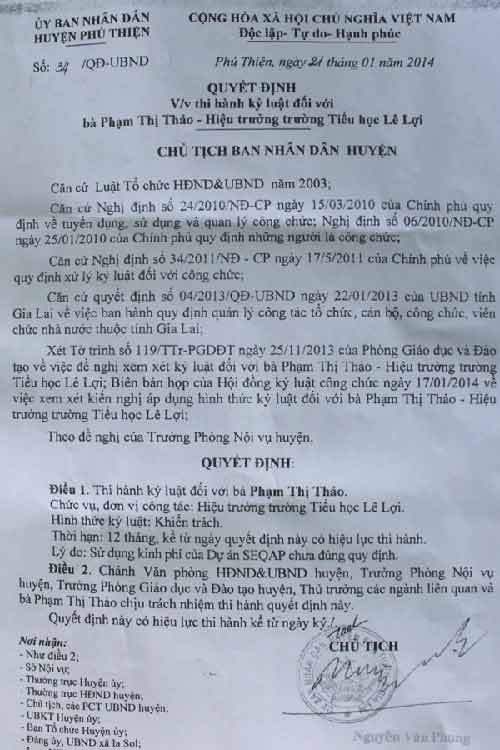 ỦY BAN NHÂN DÂN
HUYỆN PHÚ THIỆN
CỘNG HÒA XÃ HỘI CHỦ NGHĨA VIỆT NAM
Độc lập- Tự do- Hạnh phúc
Số: 34 /QĐ-UBND
Phú Thiện, ngày 21 tháng 01 năm 2014
QUYẾT ĐỊNH
V/v thi hành kỷ luật đối với
bà Phạm Thị Thảo - Hiệu trưởng trường Tiểu học Lê Lợi
CHỦ TỊCH BAN NHÂN DÂN HUYỆN
Căn cứ Luật Tổ chức HĐND&UBND năm 2003;
Căn cứ Nghị định số 24/2010/NĐ-CP ngày 15/03/2010 của Chính phủ quy
định về tuyển dụng, sử dụng và quản lý công chức; Nghị định số 06/2010/NĐ-CP
ngày 25/01/2010 của Chính phủ quy định những người là công chức;
Căn cứ Nghị định số 34/2011/NĐ - CP ngày 17/5/2011 của Chính phủ về việc
quy định xử lý kỷ luật đối với công chức;
Căn cứ quyết định số 04/2013/QĐ-UBND ngày 22/01/2013 của UBND tỉnh
Gia Lai về việc ban hành quy định quản lý công tác tổ chức, cán bộ, công chức, viên
chức nhà nước thuộc tỉnh Gia Lai;
Xét Tờ trình số 119/TTr-PGDĐT ngày 25/11/2013 của Phòng Giáo dục và Đào
tạo về việc đề nghị xem xét kỷ luật đối với bà Phạm Thị Thảo - Hiệu trưởng trường
Tiểu học Lê Lợi; Biên bản họp của Hội đồng kỷ luật công chức ngày 17/01/2014 về
việc xem xét kiến nghị áp dụng hình thức kỷ luật đối với bà Phạm Thị Thảo - Hiệu
trưởng trường Tiểu học Lê Lợi;
Theo đề nghị của Trưởng Phòng Nội vụ huyện.
QUYẾT ĐỊNH:
Điều 1. Thi hành kỷ luật đối với bà Phạm Thị Thảo.
Chức vụ, đơn vị công tác: Hiệu trưởng trường Tiểu học Lê Lợi.
Hình thức kỷ luật: Khiển trách.
Thời hạn: 12 tháng, kể từ ngày quyết định này có hiệu lực thi hành.
Lý do: Sử dụng kinh phí của Dự án SEQAP chưa đúng quy định.
Điều 2. Chánh Văn phòng HĐND&UBND huyện, Trưởng Phòng Nội vụ
huyện, Trưởng Phòng Giáo dục và Đào tạo huyện, Thủ trưởng các ngành liên quan và
bà Phạm Thị Thảo chịu trách nhiệm thi hành quyết định này.
Quyết định này có hiệu lực thi hành kể từ ngày ký./.
Nơi nhận:
- Như điều 2;
- Sở Nội vụ;
- Thường trực Huyện ủy;
- Thường trực HĐND huyện;
- Chủ tịch, các PCT UBND huyện;
- UBKT Huyện ủy;
- Ban Tổ chức Huyện ủy;
- Đảng ủy, UBND xã Ia Sol;
CHỦ TỊCH
Nguyễn Văn Phong